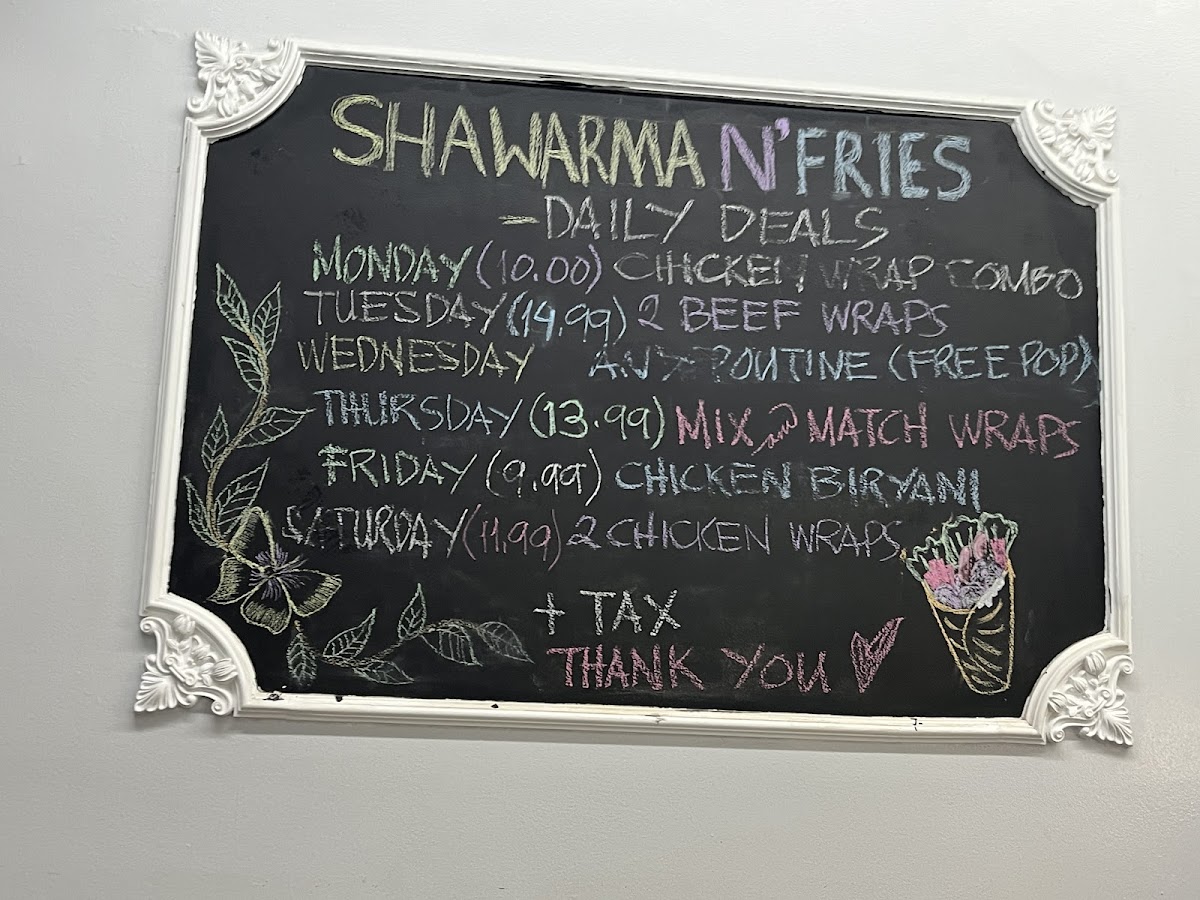 SHAWARMA N' FRIES
- DAILY DEALS
MONDAY (10.00) CHICKEN WRAP COMBO
TUESDAY (14.99) 2 BEEF WRAPS
WEDNESDAY ANY POUTINE (FREE POP)
THURSDAY (13.99) MIX and MATCH WRAPS
FRIDAY (9.99) CHICKEN BIRYANI
SATURDAY (11.99) 2 CHICKEN WRAPS
+ TAX
THANK YOU